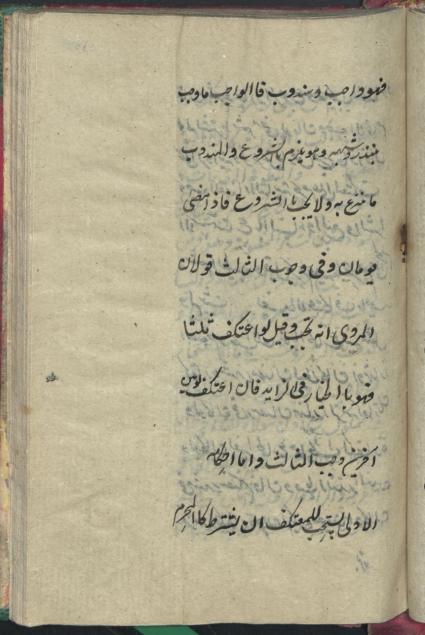 فهو واجب و مندوب فاالواجب ما وجب
بنذر و شبهه و هو يلزم بالشروع و المندوب
ما تبرع به ولا يجب بالشروع فاذا مضى
يومان وفى وجوب الثالث قولان
المروى انه تجب وقيل لو اعتكف ثلثا
فهو باالخيار فى الزايد فان اعتكف يومين
آخرين وجب الثالث و اما احكامه
الاولى يستحب للمعتكف ان يشترط كاالمحرم